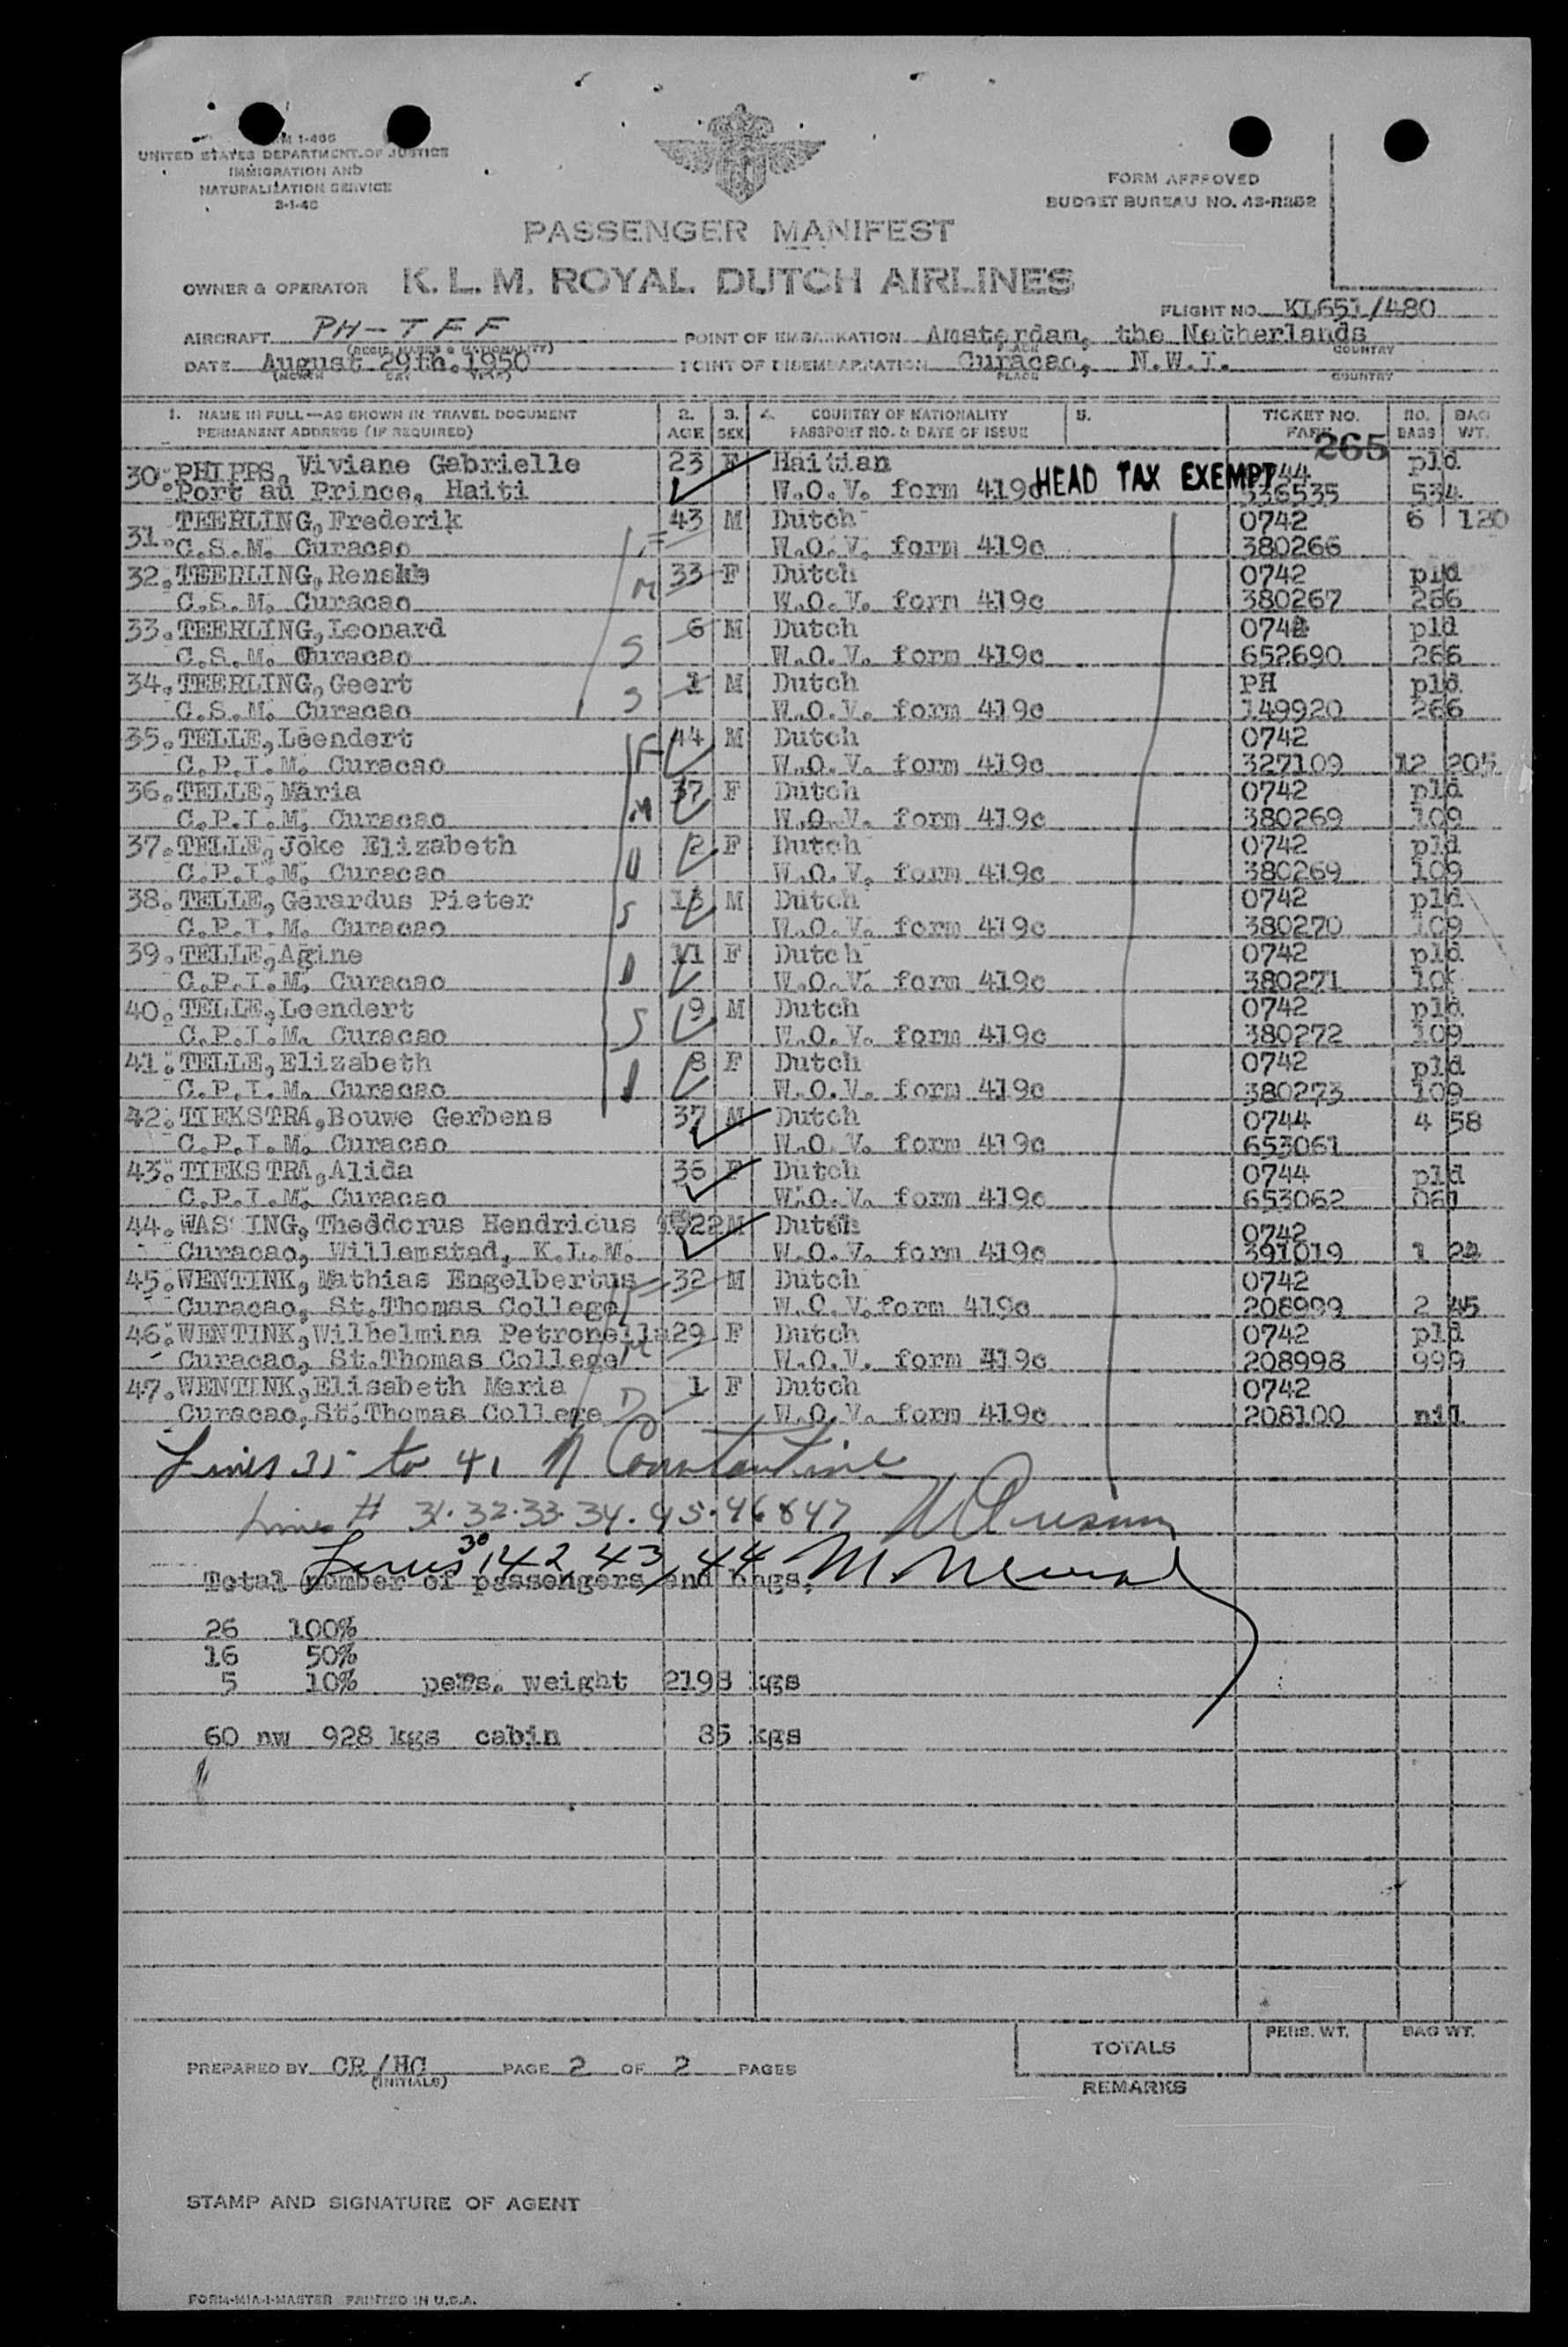 FORM I-466
UNITED STATES DEPARTMENT OF JUSTICE
IMMIGRATION AND
NATURALIZATION SERVICE
FORM APPROVED
BUDGET BUREAU NO. 43-R352
PASSENGER MANIFEST
OWNER & OPERATOR K. L. M. ROYAL DUTCH AIRLINES
FLIGHT NO. KL651/480
AIRCRAFT PH-TFF POINT OF EMBARKATION Amsterdam, the Netherlands
(REGIS. MARKS & NATIONALITY) PLACE COUNTRY
DATE August 29th. 1950 POINT OF DISEMBARKATION Curacao, N.W.I.
(MONTH DAY YEAR) PLACE COUNTRY
1. NAME IN FULL—AS SHOWN IN TRAVEL DOCUMENT 2. 3. 4. COUNTRY OF NATIONALITY 5. TICKET NO. NO. BAG
PERMANENT ADDRESS (IF REQUIRED) AGE SEX PASSPORT NO. & DATE OF ISSUE FARE BAGS WT.
265
30. PHIPPS, Viviane Gabrielle 23 F Haitian pld
Port au Prince, Haiti W.O.V. form 419c HEAD TAX EXEMPT 336535 534
31. TEERLING, Frederik 43 M Dutch 0742 6 120
C.S.M. Curacao W.O.V. form 419c 380266
32. TEERLING, 33 F Dutch 0742 pld
C.S.M. Curacao W.O.V. form 419c 380267 266
33. TEERLING, Leonard 6 M Dutch 0742 pld
C.S.M. Curacao W.O.V. form 419c 652690 266
34. TEERLING, Geert 1 M Dutch PH pld
C.S.M. Curacao W.O.V. form 419c 149920 266
35. TELLE, Leendert 44 M Dutch 0742
C.P.I.M. Curacao W.O.V. form 419c 327109 12 205
36. TELLE, Maria 37 F Dutch 0742 pld
C.P.I.M. Curacao W.O.V. form 419c 380269 109
37. TELLE, Joke Elizabeth 2 F Dutch 0742 pld
C.P.I.M. Curacao W.O.V. form 419c 380269 109
38. TELLE, Gerardus Pieter 13 M Dutch 0742 pld
C.P.I.M. Curacao W.O.V. form 419c 380270 109
39. TELLE, Agine 11 F Dutch 0742 pld
C.P.I.M. Curacao W.O.V. form 419c 380271
40. TELLE, Leendert 9 M Dutch 0742 pld
C.P.I.M. Curacao W.O.V. form 419c 380272 109
41. TELLE, Elizabeth 8 F Dutch 0742 pld
C.P.I.M. Curacao W.O.V. form 419c 380273 109
42. TIEKSTRA, Bouwe Gerbens 37 M Dutch 0744 4 58
C.P.I.M. Curacao W.O.V. form 419c 653061
43. TIEKSTRA, Alida 36 F Dutch 0744 pld
C.P.I.M. Curacao W.O.V. form 419c 653062 061
44. WAS ING, Theodorus Hendricus 22 M Dutch 0742
Curacao, Willemstad, K.L.M. W.O.V. form 419c 391019 1 24
45. WENTINK, Mathias Engelbertus 32 M Dutch 0742
Curacao, St.Thomas College W.O.V. form 419c 208999 2 45
46. WENTINK, Wilhelmina Petronella 29 F Dutch 0742 pld
Curacao, St.Thomas College W.O.V. form 419c 208998 999
47. WENTINK, Elisabeth Maria 1 F Dutch 0742
Curacao, St.Thomas College W.O.V. form 419c 208100 nil
Lines 35 to 41 N Constantine
Lines # 31.32.33.34.45.46 & 47
Lines 30, 42, 43, 44 M.
Total number of passengers and bags.
26 100%
16 50%
5 10% pers. weight 2198 kgs
60 nw 928 kgs cabin 85 kgs
TOTALS PERS. WT. BAG WT.
PREPARED BY CR/HC PAGE 2 OF 2 PAGES
(INITIALS)
REMARKS
STAMP AND SIGNATURE OF AGENT
FORM-MIA-I-MASTER PRINTED IN U.S.A.